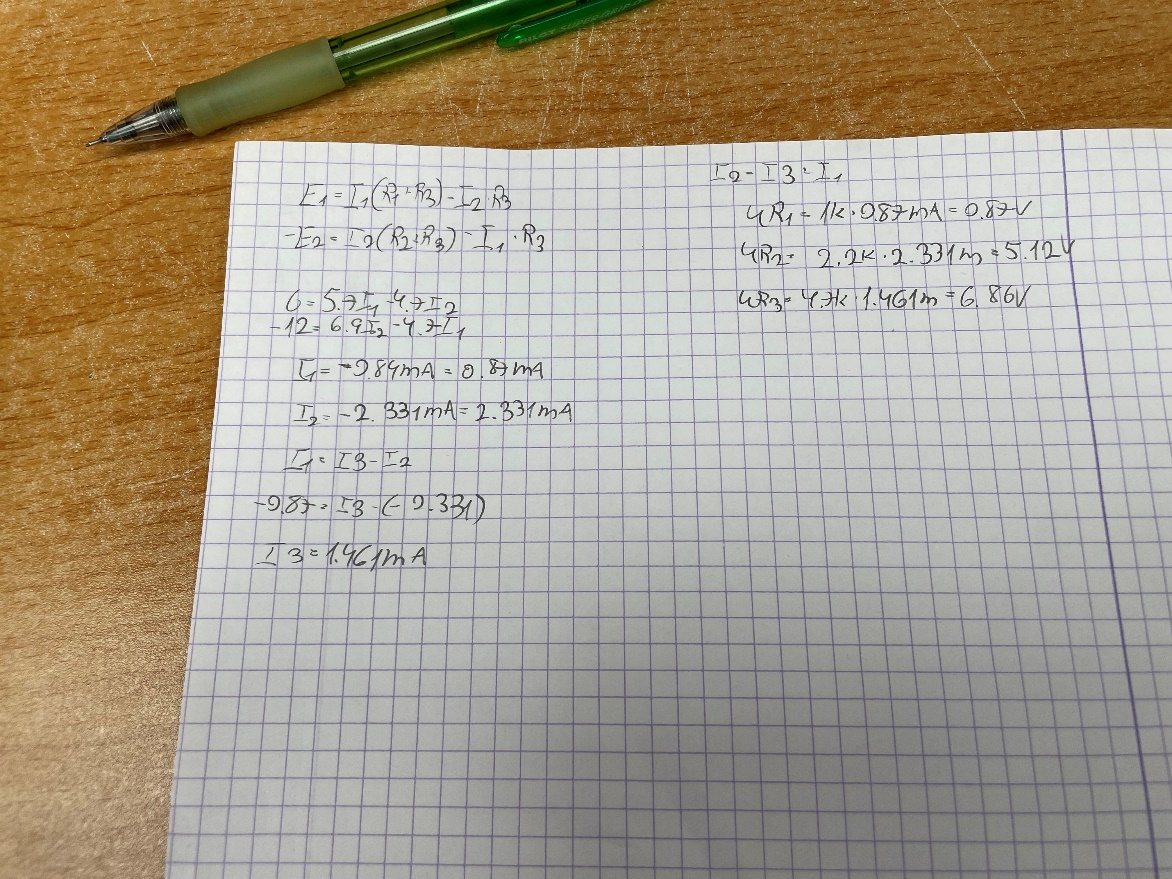 E1 = I1(R1+R3) - I2·R3
-E2 = I2(R2+R3) - I1·R3
6 = 5.7I1 - 4.7I2
-12 = 6.9I2 - 4.7I1
I1 = -0.87mA = 0.87mA
I2 = -2.331mA = 2.331mA
I1 = I3 - I2
-0.87 = I3 - (-2.331)
I3 = 1.461mA
I2 = I3 + I1
UR1 = 1k · 0.87mA = 0.87V
UR2 = 2.2k · 2.331m = 5.12V
UR3 = 4.7k · 1.461m = 6.86V